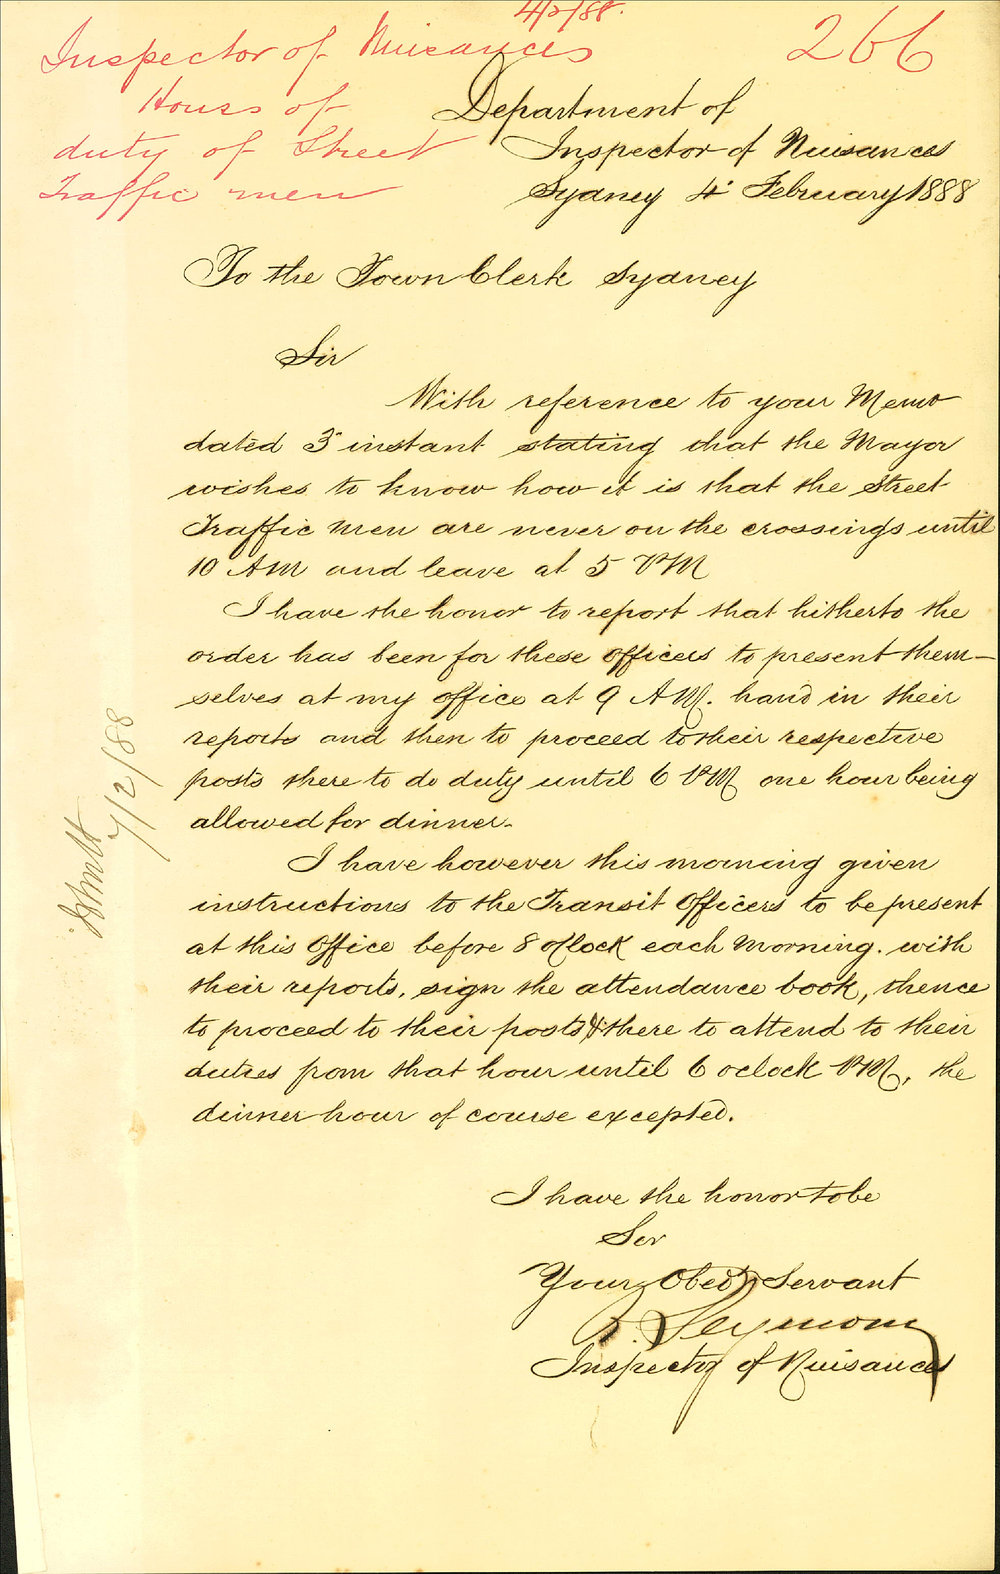 4/2/88.
266
Inspector of Nuisances
Hours of
duty of Street
Traffic men
Department of
Inspector of Nuisances
Sydney 4" February 1888
To the Town Clerk Sydney
Sir
With reference to your Memo
dated 3" instant stating that the Mayor
wishes to know how it is that the Street
Traffic men are never on the crossings until
10 AM and leave at 5 PM
I have the honor to report that hitherto the
order has been for these officers to present them-
selves at my office at 9 AM. hand in their
reports and then to proceed to their respective
posts there to do duty until 6 PM one hour being
allowed for dinner.
I have however this morning given
instructions to the Transit Officers to be present
at this Office before 8 oClock each Morning. with
their reports, sign the attendance book, thence
to proceed to their posts & there to attend to their
duties from that hour until 6 oclock PM, the
dinner hour of course excepted.
I have the honor to be
Sir
Your Obed Servant
Seymour
Inspector of Nuisances
7/2/88